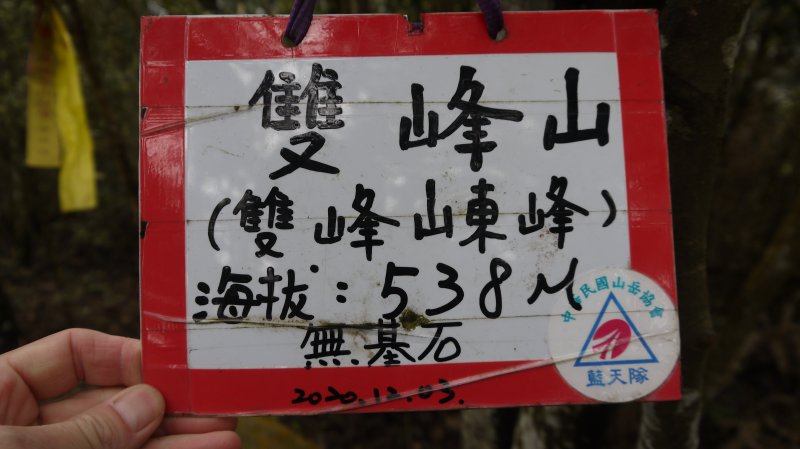 雙峰山
(雙峰山東峰)
海拔:538M
無基石
2020.12.03.
中華民國山岳協會
藍天隊